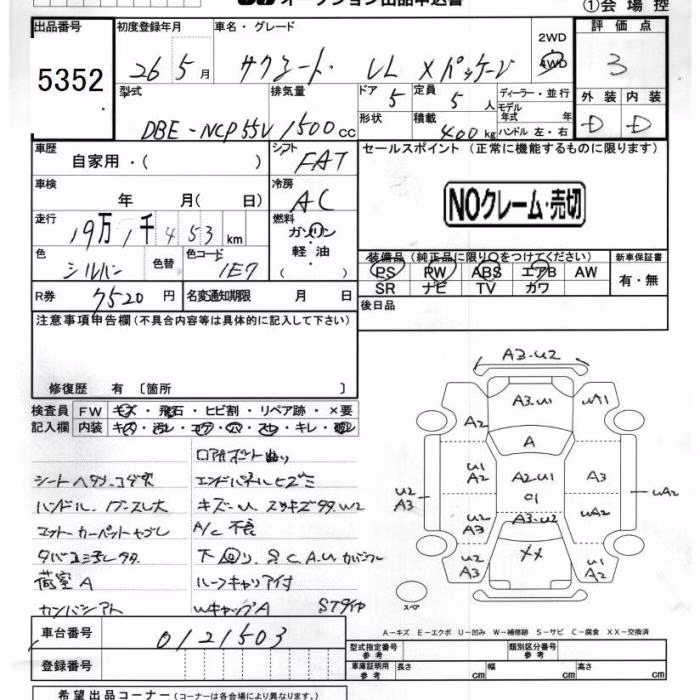 オークション出品申込書
①会場控
出品番号 初度登録年月 車名・グレード 評価点
5352 26年 5月 サクシード UL Xパッケージ 2WD 4WD 3
型式 排気量 ドア 定員 ディーラー・並行 外装 内装
DBE-NCP55V 1500cc 5 5人 モデル年式 年 D D
形状 積載 400kg ハンドル 左・右
車歴 自家用・( ) シフト FAT セールスポイント(正常に機能するものに限ります)
車検 年 月(日) 冷房 AC NOクレーム・売切
走行 19万1千453km 燃料 ガソリン 軽油
装備品(純正品に限り○をつけてください) 新車保証書
色 シルバー 色替 色コード 1E7 PS PW ABS エアB AW 有・無
SR ナビ TV カワ
R券 7520円 名変通知期限 月 日 後日品
注意事項申告欄(不具合内容等は具体的に記入して下さい)
修復歴 有〔箇所 〕
検査員 FW キズ・飛石・ヒビ割・リペア跡・×要
記入欄 内装
シートヘタリ・コゲ穴
ハンドル
エンドパネルヒズミ
A/C不良
マット・カーペットヤブレ
荷室A
ルーフキャリア付
WキャップA STタイヤ
A3-U2
A3-U1 UA1
A2
A
U1 A2 A2U1 A3
U2 A3 UA2
U2 A2 A3-U2 UA2
U2 A3 XX U1 A2
スペア
車台番号 0121503
A-キズ E-エクボ U-凹み W-補修跡 S-サビ C-腐食 XX-交換済
登録番号
型式指定番号 参考 類別区分番号 参考
車庫証明用 参考 長さ cm 幅 cm 高さ cm
希望出品コーナー(コーナーは各会場により異なります。)